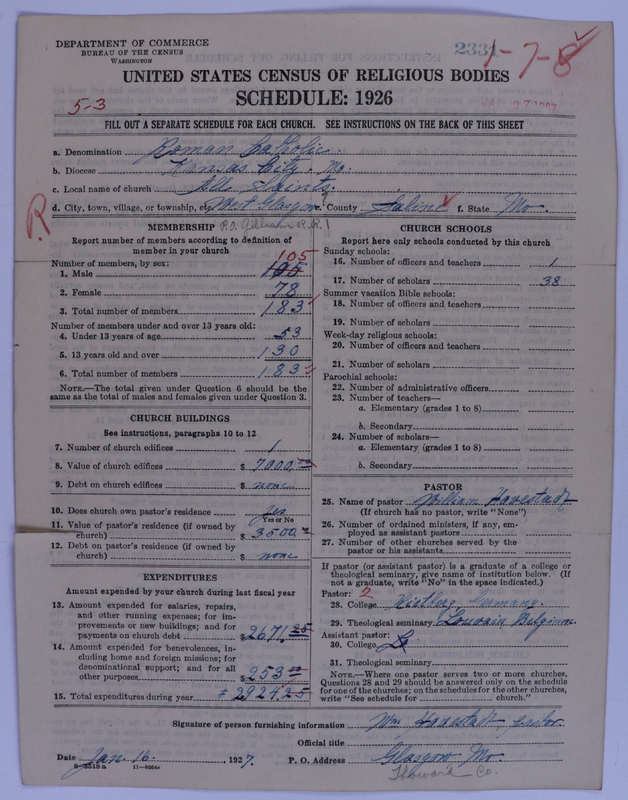 DEPARTMENT OF COMMERCE
BUREAU OF THE CENSUS
WASHINGTON
2331
1-7-8
UNITED STATES CENSUS OF RELIGIOUS BODIES
SCHEDULE: 1926
5-3
FILL OUT A SEPARATE SCHEDULE FOR EACH CHURCH. SEE INSTRUCTIONS ON THE BACK OF THIS SHEET
a. Denomination Roman Catholic.
b. Diocese Kansas City, Mo.
c. Local name of church All Saints.
d. City, town, village, or township, etc. West Glasgow e. County Saline f. State Mo.
R
MEMBERSHIP P.O. Gilliam R.R. 1
Report number of members according to definition of
member in your church
Number of members, by sex: 105
1. Male 105
2. Female 78
3. Total number of members 183
Number of members under and over 13 years old:
4. Under 13 years of age 53
5. 13 years old and over 130
6. Total number of members 183
NOTE.—The total given under Question 6 should be the
same as the total of males and females given under Question 3.
CHURCH BUILDINGS
See instructions, paragraphs 10 to 12
7. Number of church edifices 1
8. Value of church edifices $ 7000.00
9. Debt on church edifices $ none
10. Does church own pastor's residence yes
Yes or No
11. Value of pastor's residence (if owned by
church) $ 3500.00
12. Debt on pastor's residence (if owned by
church) $ none
EXPENDITURES
Amount expended by your church during last fiscal year
13. Amount expended for salaries, repairs,
and other running expenses; for im-
provements or new buildings; and for
payments on church debt $ 2671.25
14. Amount expended for benevolences, in-
cluding home and foreign missions; for
denominational support; and for all
other purposes $ 253.00
15. Total expenditures during year $ 2924.25
CHURCH SCHOOLS
Report here only schools conducted by this church
Sunday schools:
16. Number of officers and teachers 1
17. Number of scholars 38
Summer vacation Bible schools:
18. Number of officers and teachers
19. Number of scholars
Week-day religious schools:
20. Number of officers and teachers
21. Number of scholars
Parochial schools:
22. Number of administrative officers
23. Number of teachers—
a. Elementary (grades 1 to 8)
b. Secondary
24. Number of scholars—
a. Elementary (grades 1 to 8)
b. Secondary
PASTOR
25. Name of pastor William Hovestadt
(If church has no pastor, write "None")
26. Number of ordained ministers, if any, em-
ployed as assistant pastors
27. Number of other churches served by the
pastor or his assistants
If pastor (or assistant pastor) is a graduate of a college or
theological seminary, give name of institution below. (If
not a graduate, write "No" in the space indicated.)
Pastor: 2
28. College Germany.
29. Theological seminary Louvain Belgium.
Assistant pastor:
30. College
31. Theological seminary
NOTE.—Where one pastor serves two or more churches,
Questions 28 and 29 should be answered only on the schedule
for one of the churches; on the schedules for the other churches,
write "See schedule for church."
Signature of person furnishing information Wm Hovestadt, pastor.
Official title
Date Jan. 16., 1927. P. O. Address Glasgow Mo.
8-5518a 11-9054a
Howard Co.